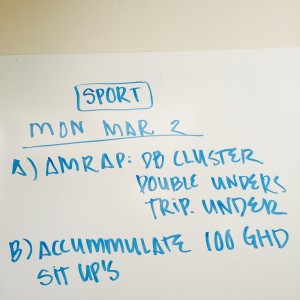 SPORT
MON MAR 2
A) AMRAP: DB CLUSTER
DOUBLE UNDERS
TRIP. UNDER
B) ACCUMMULATE 100 GHD
SIT UP'S